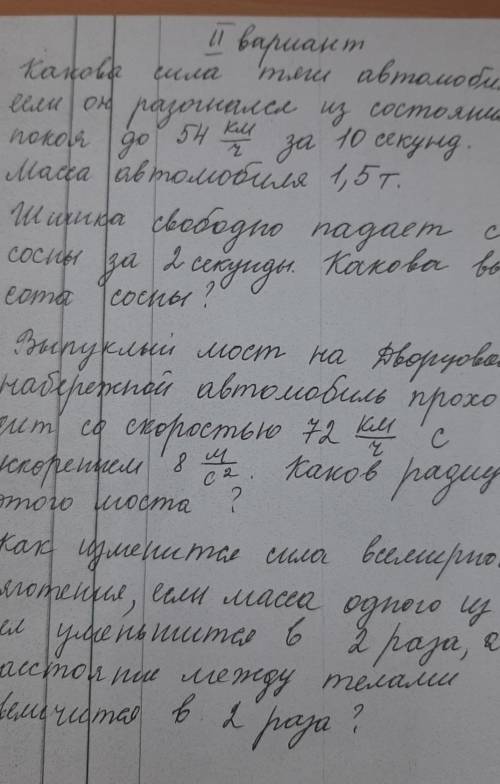 II вариант
Какова сила тяги автомоби
если он разогнался из состояни
покоя до 54 км/ч за 10 секунд.
Масса автомобиля 1,5 т.
Шишка свободно падает с
сосны за 2 секунды. Какова вы
сота сосны?
Выпуклый мост на Дворцова
набережной автомобиль прохо
дит со скоростью 72 км/ч с
ускорением 8 м/с². Каков радиу
этого моста?
Как изменится сила всемирно
яготения, если масса одного из
ел уменьшится в 2 раза, а
асстояние между телами
величится в 2 раза?